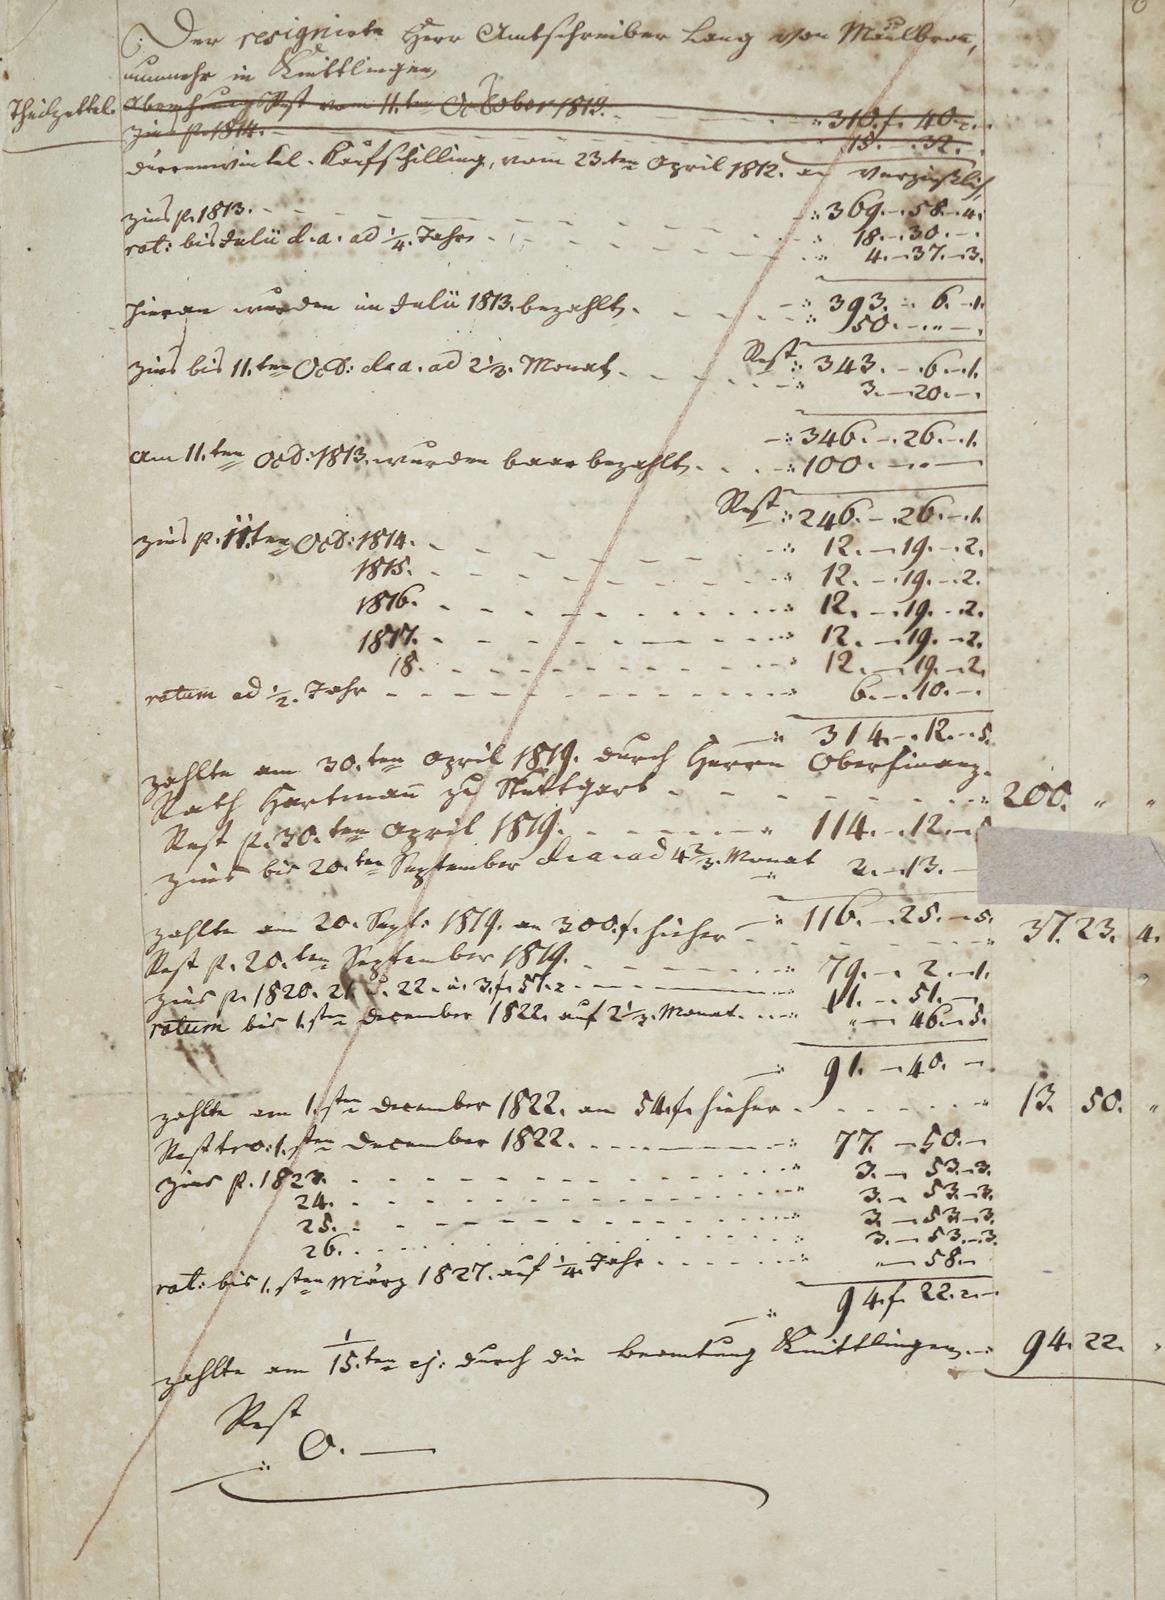 Der resignirte Herr Amtschreiber Lang von Maulbron,
nunmehr in Knittlingen,
Theilzettel. Abrechnungs Rest vom 11.ten October 1813. 310.f. 40.x.
Zins p. 1814. 15. 32.
Dürrenwinkel. Kaufschilling, vom 23.ten April 1812. an verzinßlich
369. 58. 4.
Zins p. 1813. 18. 30.
rat: bis Julii d. a. ad 1/4. Jahr 4. 37. 3.
393. 6. 1.
hieran wurden im Julii 1813. bezahlt. 50. " .
Rest 343. 6. 1.
Zins bis 11.ten Oct: d. a. ad 2 1/3. Monat 3. 20.
346. 26. 1.
am 11.ten Oct: 1813. wurden baar bezahlt 100. "
Rest 246. 26. 1.
Zins p. 11.ten Oct: 1814. 12. 19. 2.
1815. 12. 19. 2.
1816. 12. 19. 2.
1817. 12. 19. 2.
18. 12. 19. 2.
ratum ad 1/2. Jahr 6. 10.
314. 12. 5.
zahlte am 30.ten April 1819. durch Herrn Oberfinanz-
Rath Hartmann zu Stuttgart 200. " "
Rest p. 30.ten April 1819. 114. 12.
Zins bis 20.ten September d. a. ad 4 2/3. Monat 2. 13.
116. 25. 5.
zahlte am 20. Sept: 1819. an 300.f. hieher 37. 23. 4.
Rest p. 20.ten September 1819. 79. 2. 1.
Zins p. 1820. 21. u. 22. à 3.f. 57.x 11. 51.
ratum bis 1.sten December 1822. auf 2 1/3. Monat " 46. 5.
91. 40.
zahlte am 1.sten December 1822. an 54.f. hieher 13. 50. "
Rest tro: 1.sten December 1822. 77. 50.
Zins p. 1823. 3. 53. 3.
24. 3. 53. 3.
25. 3. 53. 3.
26. 3. 53. 3.
rat: bis 1.sten März 1827. auf 1/4. Jahr " 58.
94.f. 22.x.
zahlte am 15.ten ej: durch die Beamtung Knittlingen 94. 22.
Rest
0.